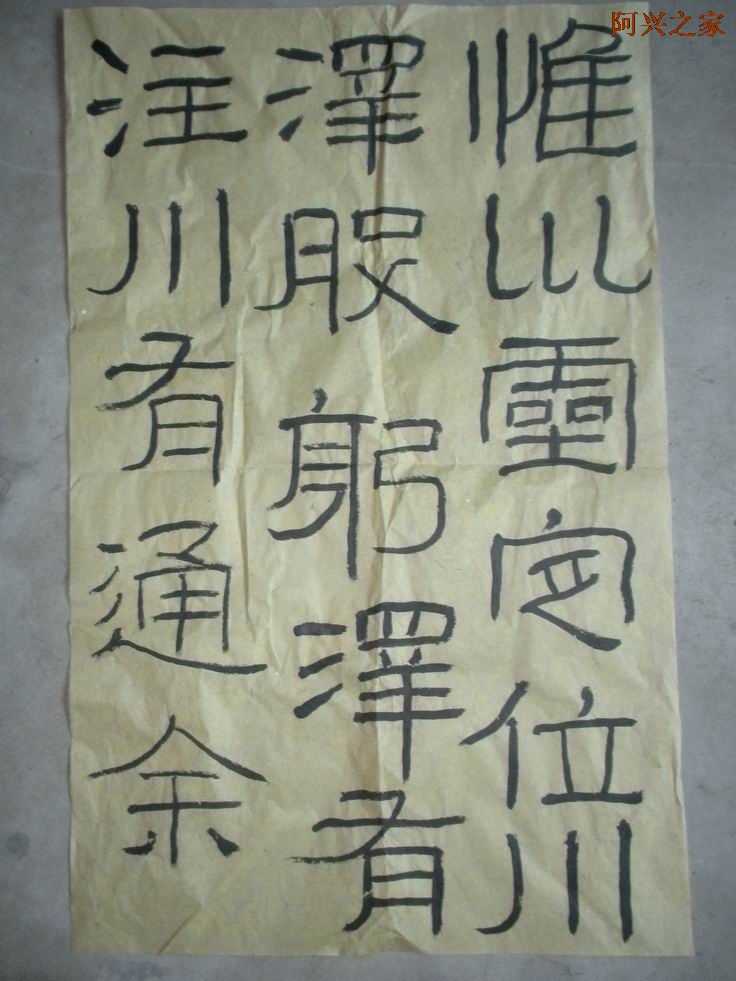 阿兴之家
惟巛靈定位川
澤股躬澤有
注川有通余